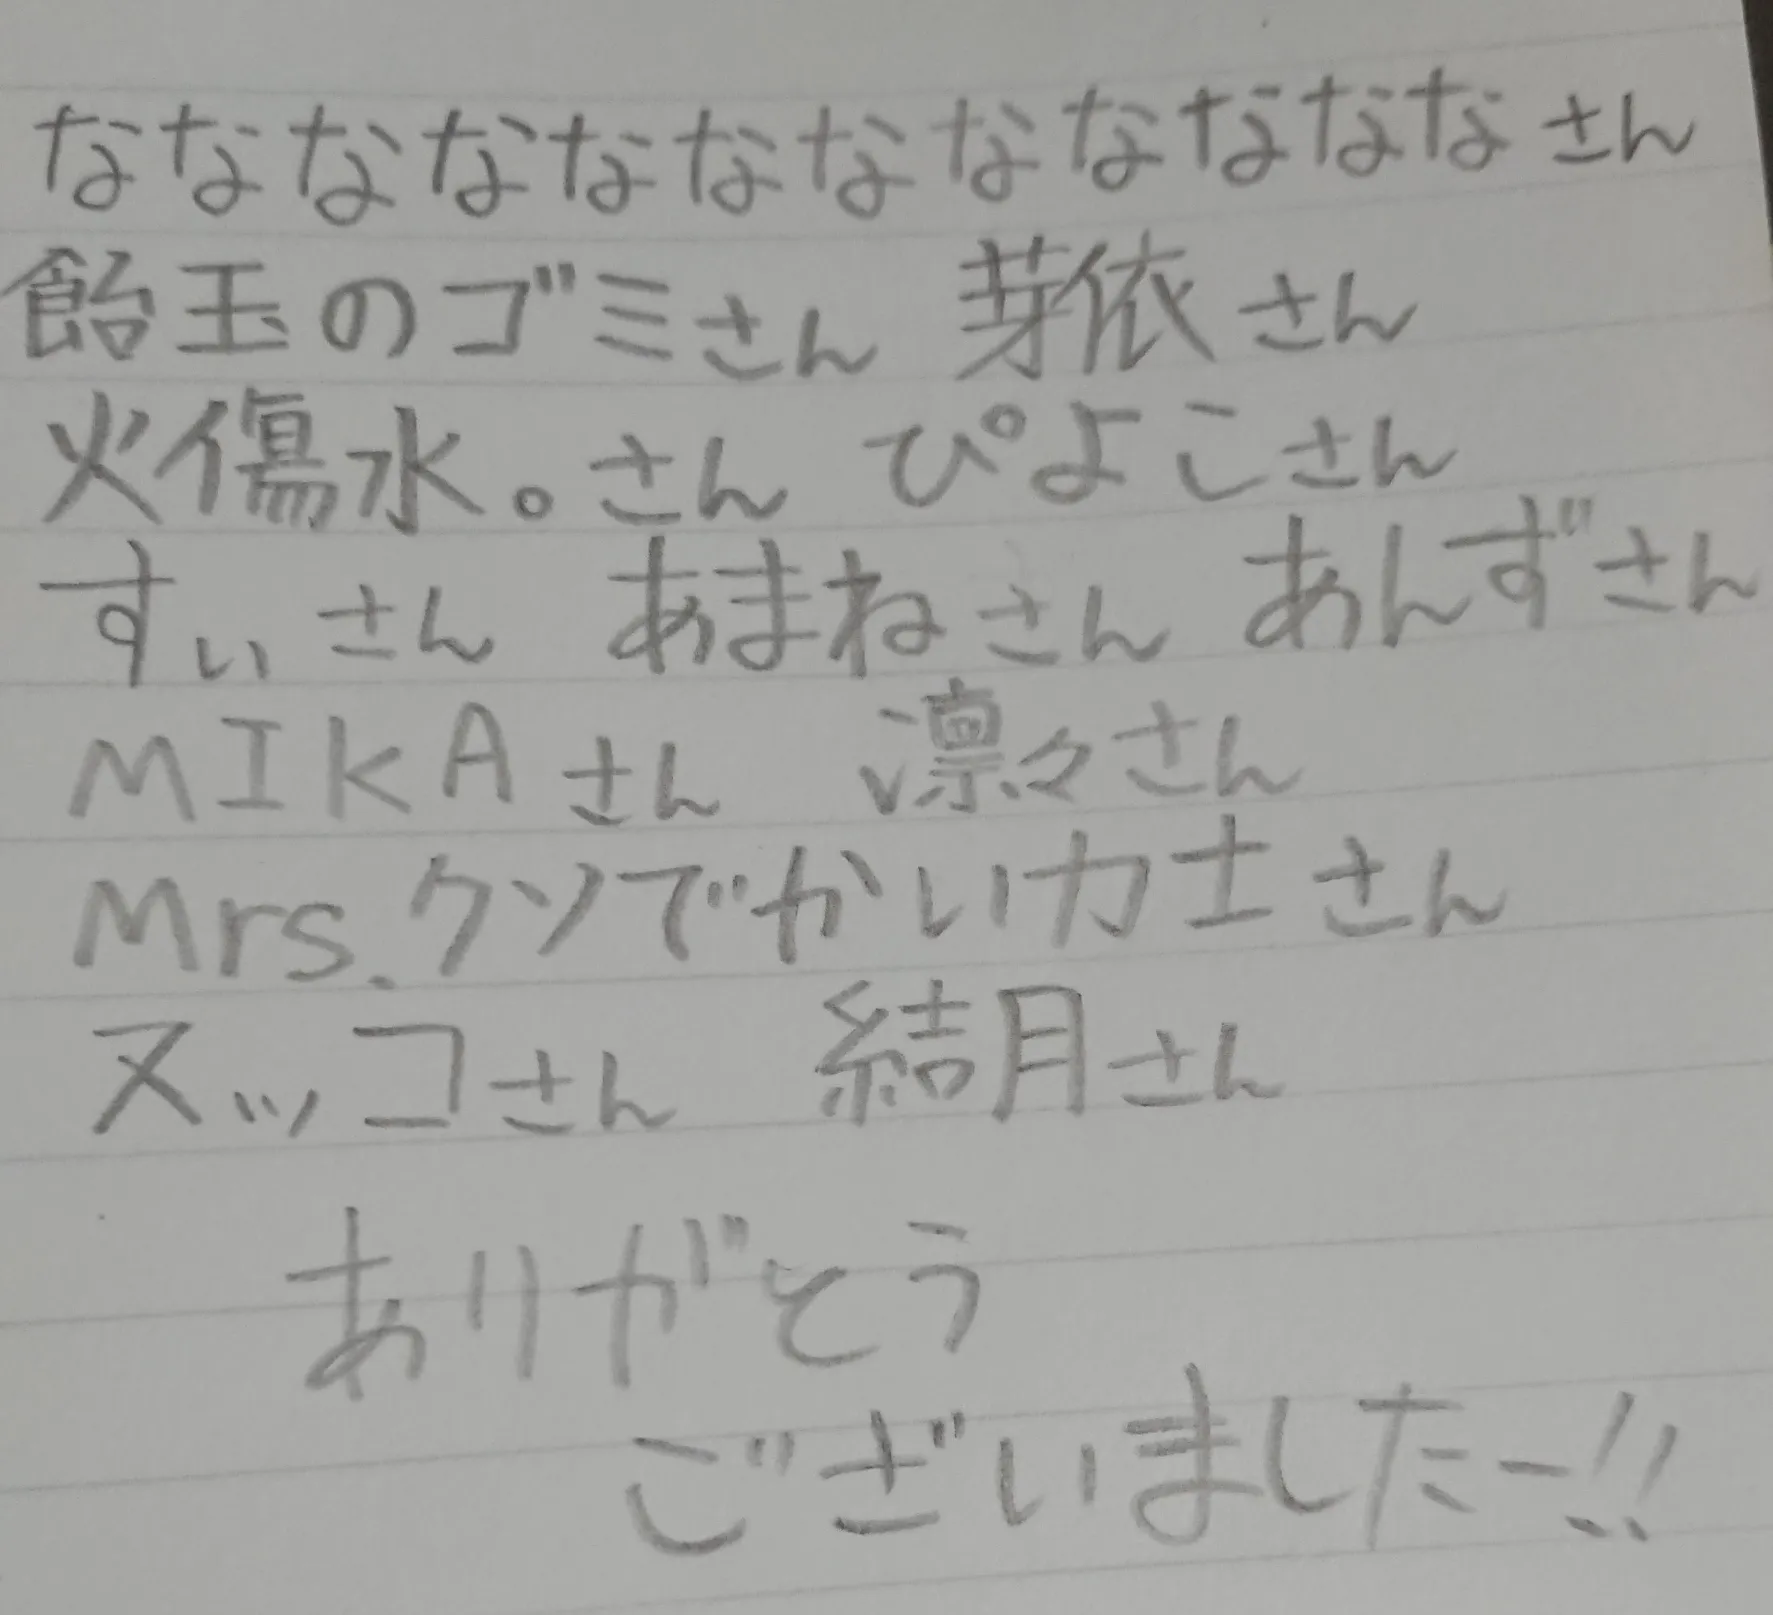 なななななななななななな さん
飴玉のゴミさん 芽依さん
火傷水。さん ぴよこさん
すぃさん あまねさん あんずさん
MIKAさん 凛々さん
Mrs.クソでかい力士さん
ヌッコさん 結月さん
ありがとう
ございましたー!!